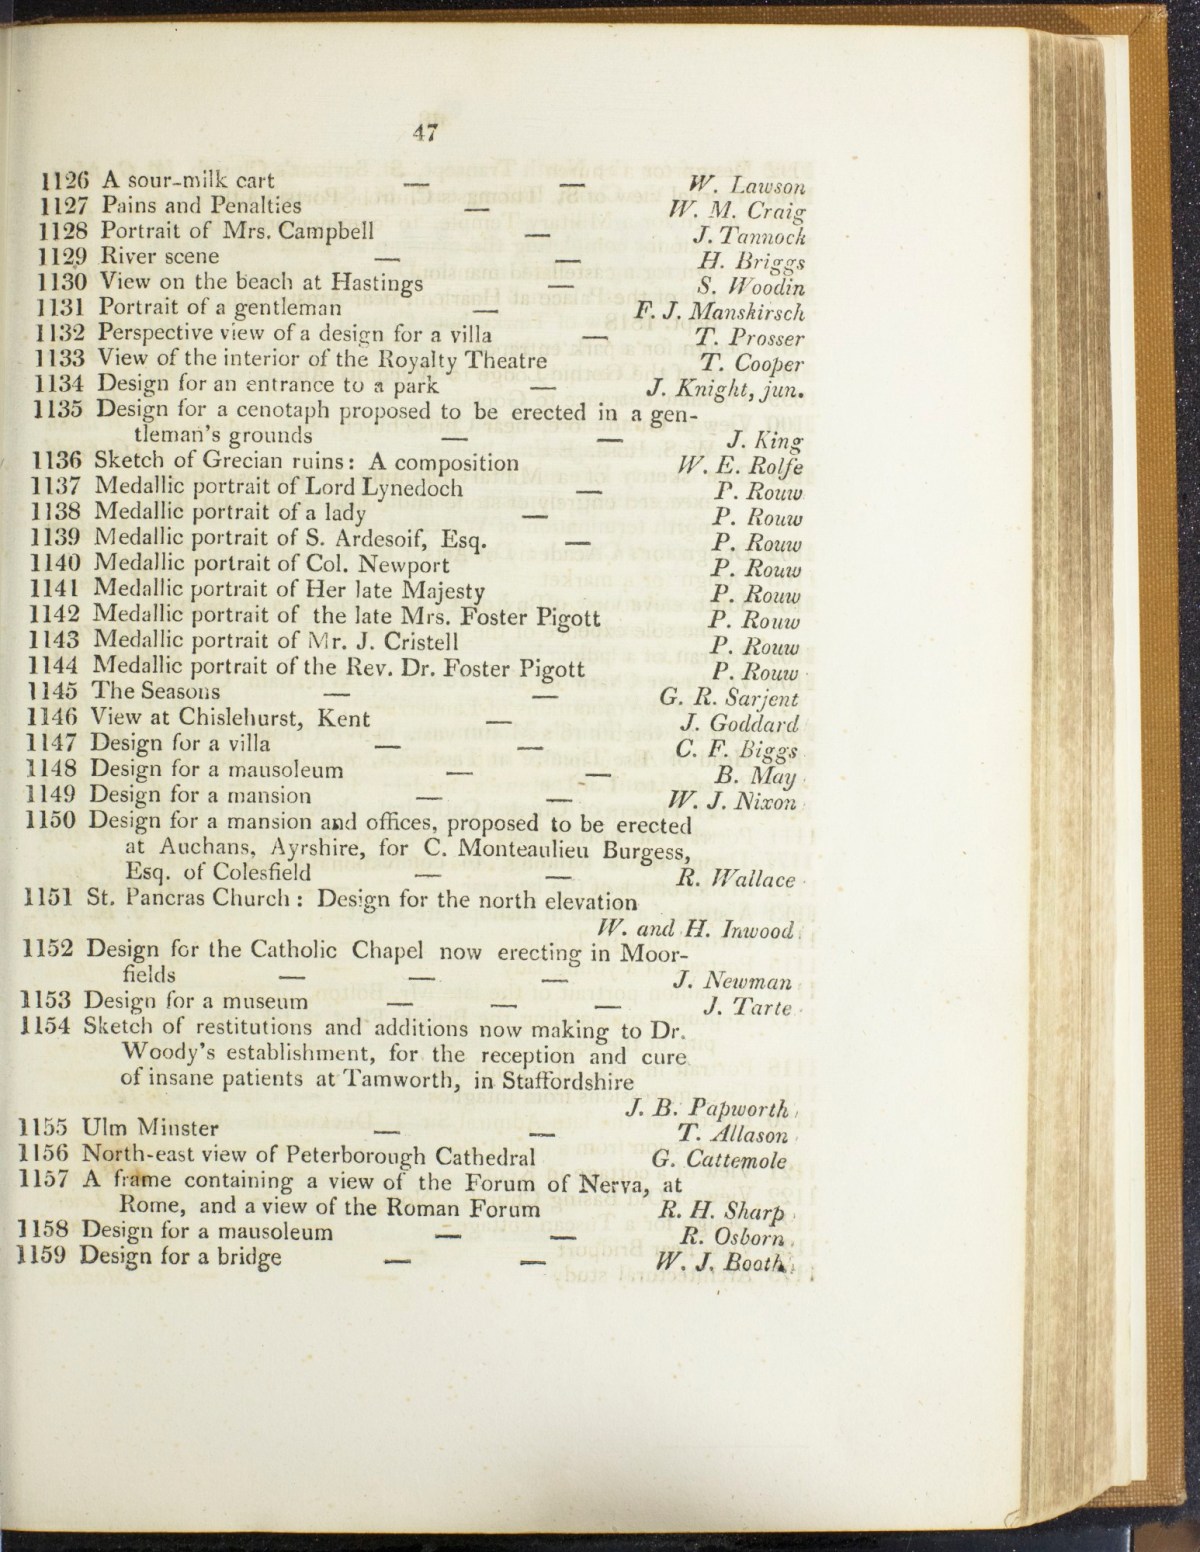 47
1126 A sour-milk cart — — W. Lawson
1127 Pains and Penalties — W. M. Craig
1128 Portrait of Mrs. Campbell — J. Tannock
1129 River scene — — H. Briggs
1130 View on the beach at Hastings — S. Woodin
1131 Portrait of a gentleman — F. J. Manskirsch
1132 Perspective view of a design for a villa — T. Prosser
1133 View of the interior of the Royalty Theatre T. Cooper
1134 Design for an entrance to a park — J. Knight, jun.
1135 Design for a cenotaph proposed to be erected in a gen-
tleman's grounds — — J. King
1136 Sketch of Grecian ruins: A composition W. E. Rolfe
1137 Medallic portrait of Lord Lynedoch — P. Rouw
1138 Medallic portrait of a lady — P. Rouw
1139 Medallic portrait of S. Ardesoif, Esq. — P. Rouw
1140 Medallic portrait of Col. Newport P. Rouw
1141 Medallic portrait of Her late Majesty P. Rouw
1142 Medallic portrait of the late Mrs. Foster Pigott P. Rouw
1143 Medallic portrait of Mr. J. Cristell P. Rouw
1144 Medallic portrait of the Rev. Dr. Foster Pigott P. Rouw
1145 The Seasons — — G. R. Sarjent
1146 View at Chislehurst, Kent — J. Goddard
1147 Design for a villa — — C. F. Biggs
1148 Design for a mausoleum — — B. May
1149 Design for a mansion — — W. J. Nixon
1150 Design for a mansion and offices, proposed to be erected
at Auchans, Ayrshire, for C. Monteaulieu Burgess,
Esq. of Colesfield — — R. Wallace
1151 St. Pancras Church: Design for the north elevation
W. and H. Inwood
1152 Design for the Catholic Chapel now erecting in Moor-
fields — — — J. Newman
1153 Design for a museum — — — J. Tarte
1154 Sketch of restitutions and additions now making to Dr.
Woody's establishment, for the reception and cure
of insane patients at Tamworth, in Staffordshire
J. B. Papworth
1155 Ulm Minster — — T. Allason
1156 North-east view of Peterborough Cathedral G. Cattemole
1157 A frame containing a view of the Forum of Nerva, at
Rome, and a view of the Roman Forum R. H. Sharp
1158 Design for a mausoleum — — R. Osborn
1159 Design for a bridge — — W. J. Booth